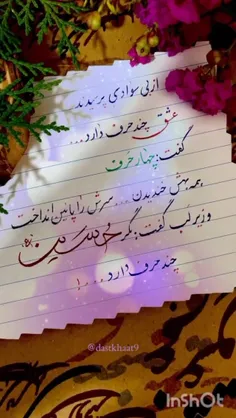 از بی سوادی پرسیدند
عشق چند حرف دارد....
گفت: چهار حرف
همه بهش خندیدن... سرش را پائین انداخت
و زیر لب گفت: مگر
چند حرف دارد....!
@dastkhaat9
InShOt